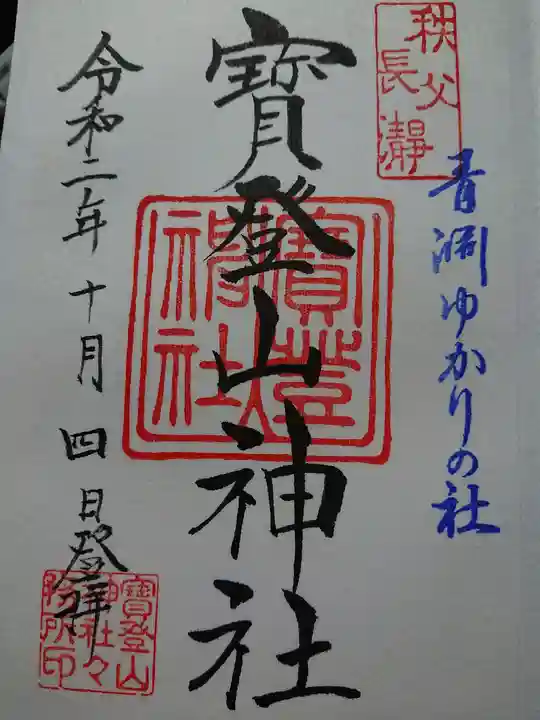 秩父
長瀞
青淵ゆかりの社
寶登山神社
寶登山
神社
令和二年十月四日登拝
寶登山
神社々
務所印